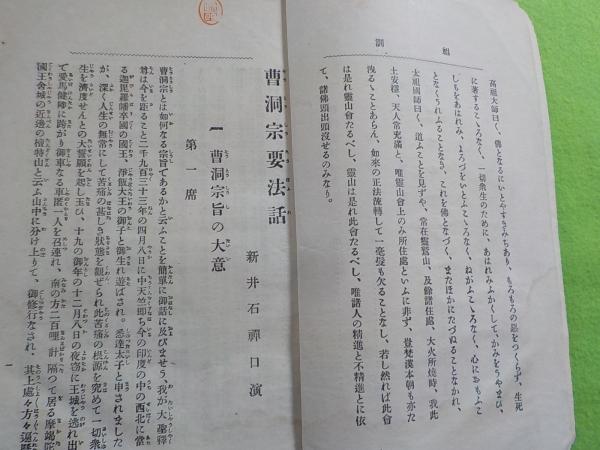 祖訓
高祖大師曰く、佛となるにいとやすきみちあり、もろもろの惡をつくらず、生死
に著するこゝろなく、一切衆生のために、あはれみふかくして、かみをうやまひ、
しもをあはれみ、よろづをいとふこゝろなく、ねがふこゝろなく、心におもふこ
となくうれふることなき、これを佛となづく、またほかにたづぬることなかれ、
太祖國師曰く、道ふことを見ずや、常在靈鷲山、及餘諸住處、大火所燒時、我此
土安穩、天人常充滿と、唯靈山會上のみ所住處といふに非ず、豈梵漢本朝も亦た
洩るゝことあらん、如來の正法流轉して一毫髮も欠ることなし、若し然れば此會
は是れ靈山會たるべし、靈山は是れ此會たるべし、唯諸人の精進と不精進とに依
て、諸佛出頭沒せるのみなり。
曹洞宗要法話
新井石禪口演
第一席
【一 曹洞宗旨の大意
曹洞宗とは如何なる宗旨であるかと云ふことを簡單に御話に及びませう、我が大聖釋
尊は今を距ること二千九百三十三年の四月八日に中天竺即ち今の印度の中の西北に當
る迦毘羅幡卒國の國王、淨飯大王の御子と御生れ遊ばされ。悉達太子と申されました
が、深く人生の無常にして苦痛の甚しき狀態を觀ぜられ此苦痛の根源を究めて一切衆
生を濟度せんとの大誓願を起し玉ひ、十九の御年の十二月八日の夜窃に王城を逃れ出
て愛馬健陟に跨がり御車なる車匿一人を召連れ、南の方二百哩計隔つて居る摩竭陀
國王舍城の近邊の檀特山と云ふ山中に分け上りて、御修行なされ、其上處々方々遍歷